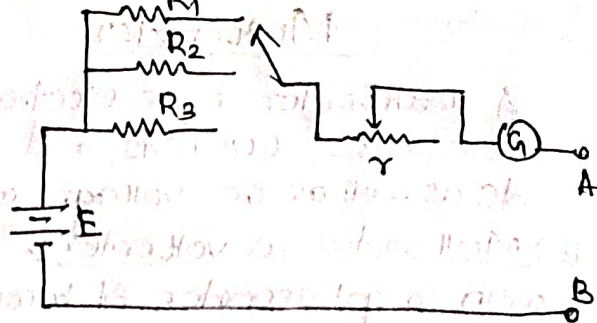 R1
R2
R3
r
G
A
E
B